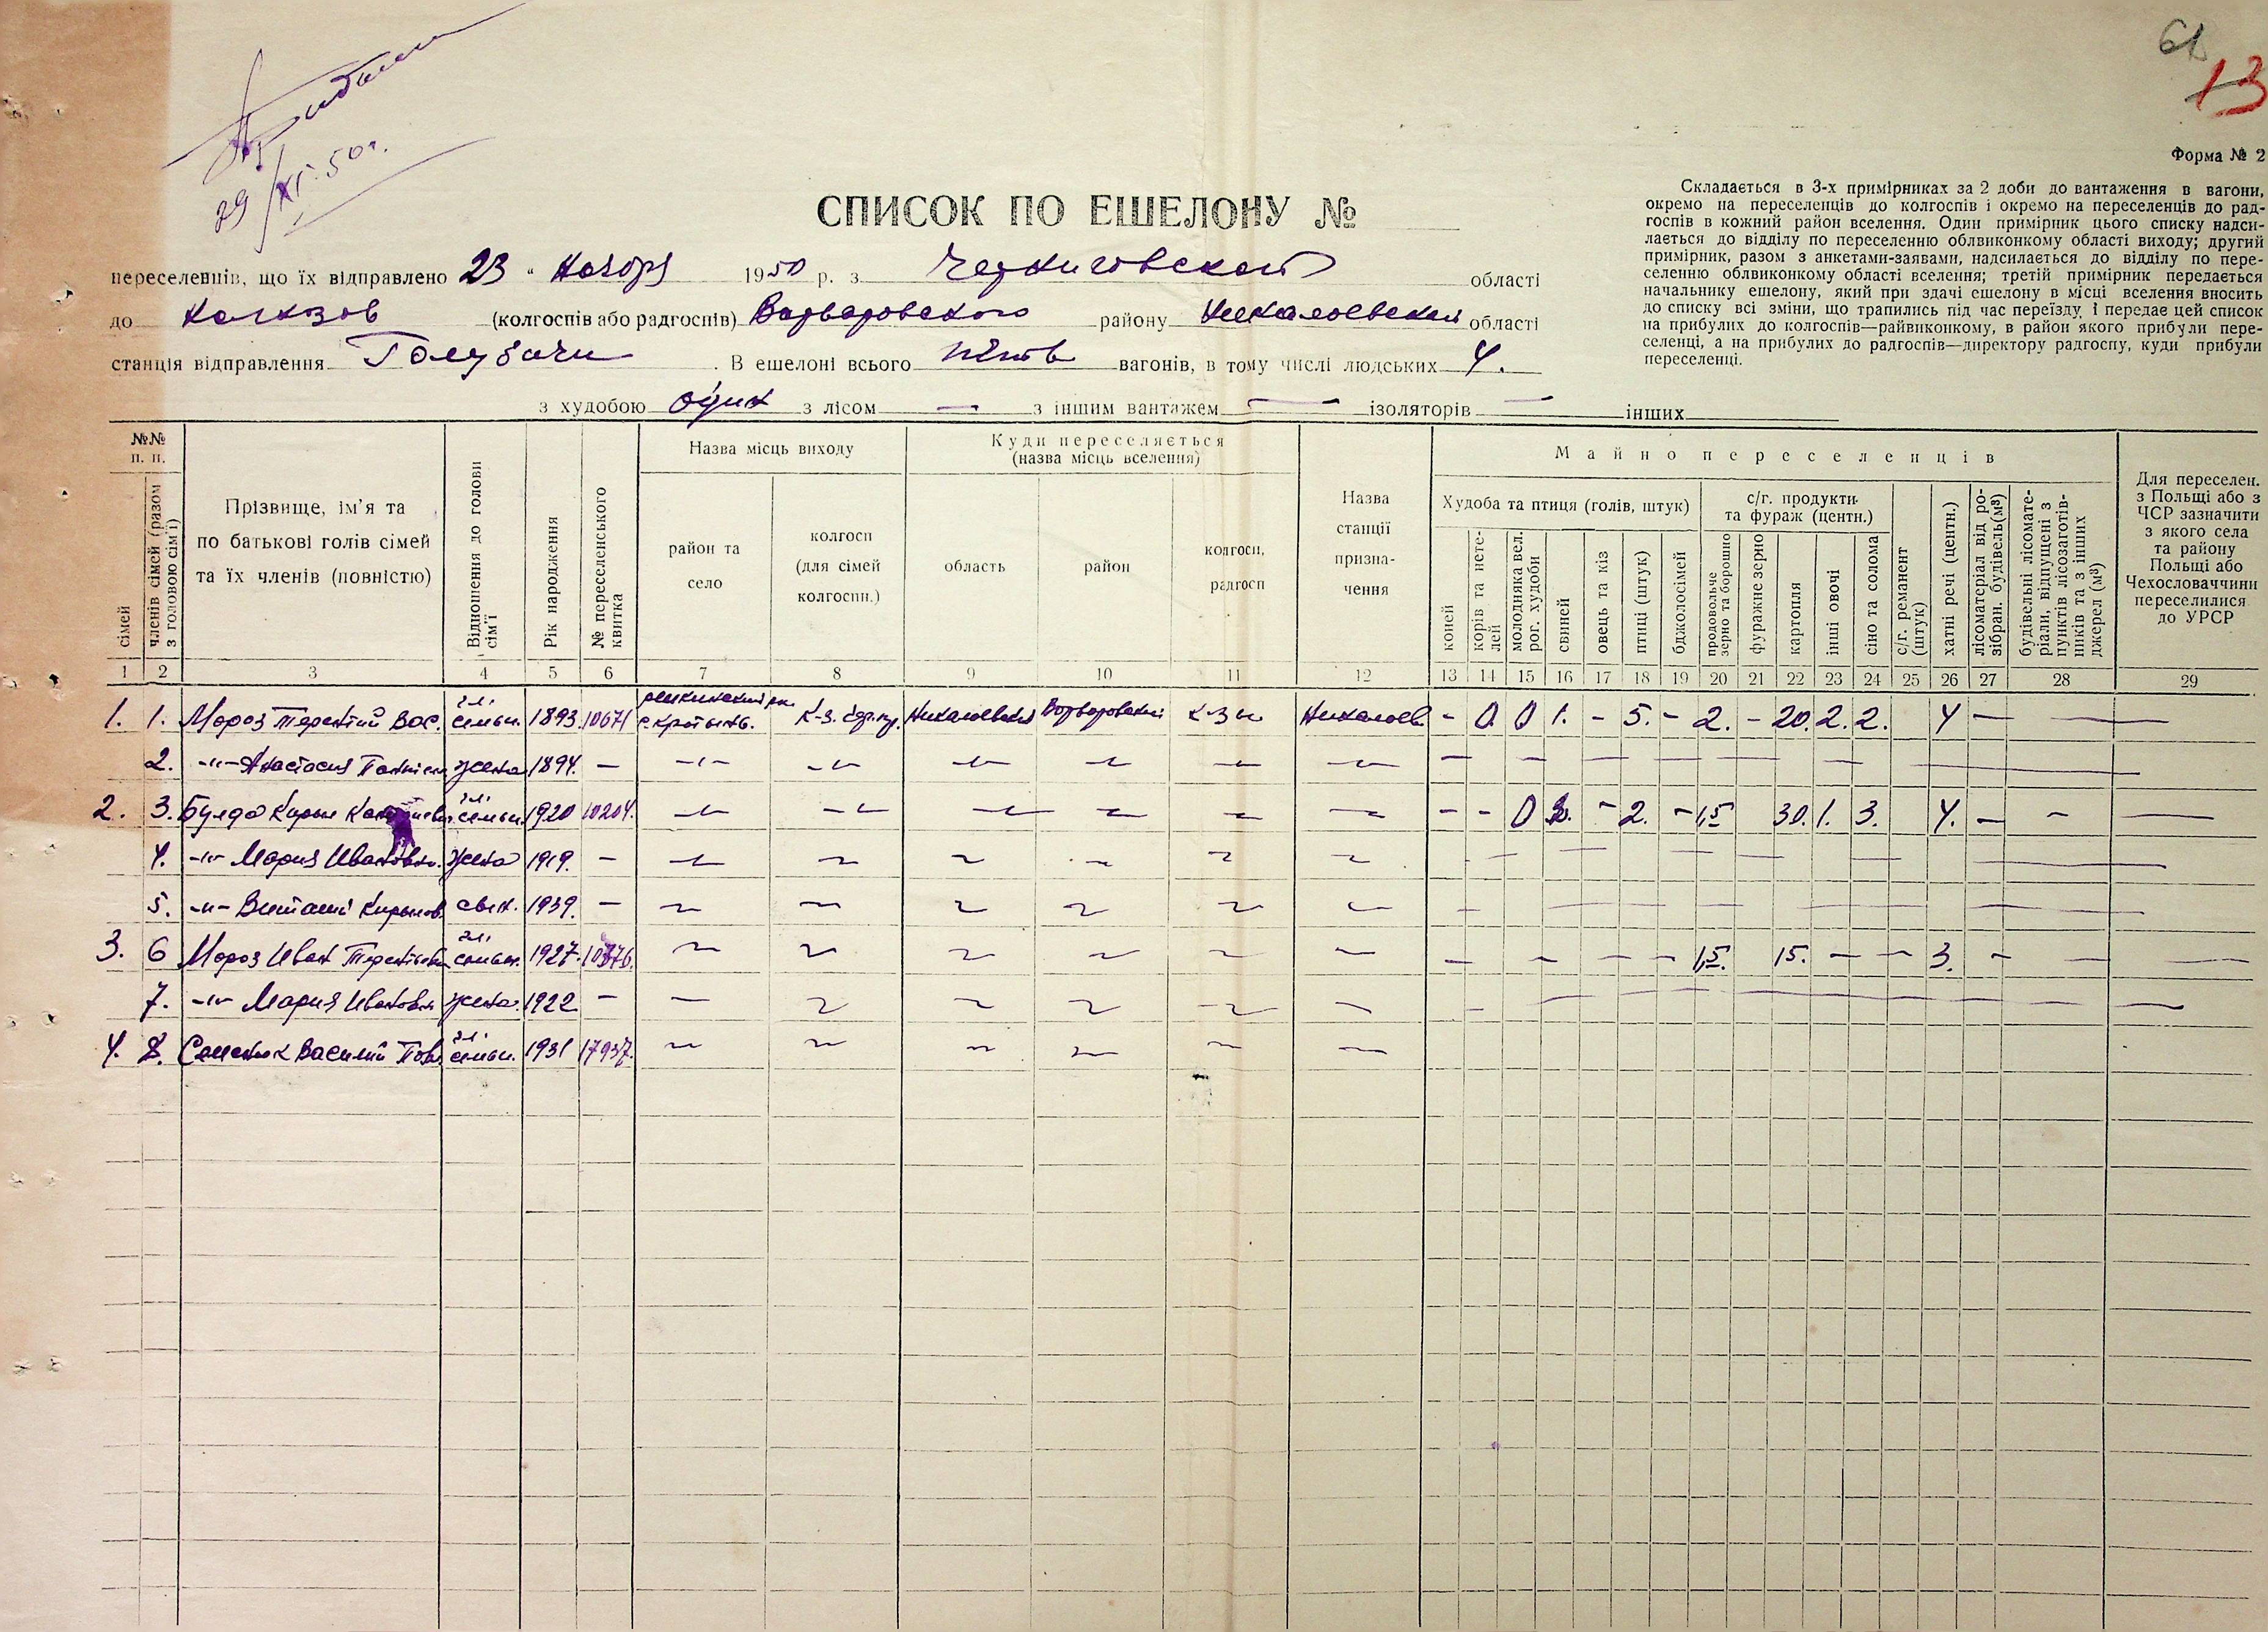 61
13
29/XI-50г.
Форма № 2
СПИСОК ПО ЕШЕЛОНУ №
Складається в 3-х примірниках за 2 доби до вантаження в вагони,
окремо на переселенців до колгоспів і окремо на переселенців до рад-
госпів в кожний район вселення. Один примірник цього списку надси-
лається до відділу по переселенню облвиконкому області виходу; другий
примірник, разом з анкетами-заявами, надсилається до відділу по пере-
селенню облвиконкому області вселення; третій примірник передається
начальнику ешелону, який при здачі ешелону в місці вселення вносить
до списку всі зміни, що трапились під час переїзду, і передає цей список
на прибулих до колгоспів—райвиконкому, в район якого прибули пере-
селенці, а на прибулих до радгоспів—директору радгоспу, куди прибули
переселенці.
переселенців, що їх відправлено 23 " Ноября 1950 р. з Черниговской області
до Колхозов (колгоспів або радгоспів) Варваровского району Николаевской області
станція відправлення Голубичи. В ешелоні всього пять вагонів, в тому числі людських 4.
з худобою один з лісом — з іншим вантажем — ізоляторів — інших
№№ п. п.
сімей
членів сімей (разом з головою сім'ї)
Прізвище, ім'я та
по батькові голів сімей
та їх членів (повністю)
Відношення до голови сім'ї
Рік народження
№ переселенського квитка
Назва місць виходу
район та село
колгосп (для сімей колгоспн.)
Куди переселяється (назва місць вселення)
область
район
колгосп, радгосп
Назва станції призна- чення
Майно переселенців
Худоба та птиця (голів, штук)
коней
корів та нете- лей
молодняка вел. рог. худоби
свиней
овець та кіз
птиці (штук)
бджолосімей
с/г. продукти та фураж (центн.)
продовольче зерно та борошно
фуражне зерно
картопля
інші овочі
сіно та солома
с/г. реманент (штук)
хатні речі (центн.)
лісоматеріал від ро- зібран. будівель (м³)
будівельні лісомате- ріали, відпущені з пунктів лісозаготів- ників та з інших джерел (м³)
Для переселен. з Польщі або з ЧСР зазначити з якого села та району Польщі або Чехословаччини переселилися до УРСР
1 2 3 4 5 6 7 8 9 10 11 12 13 14 15 16 17 18 19 20 21 22 23 24 25 26 27 28 29
1. 1. Мороз Терентий Вас. гл. семьи. 1893 10671 Николаевская Варваровский к-зы Николаев. - 0 0 1. - 5. - 2. - 20. 2. 2. 4 — —
2. -"- Анастасия жена 1894. —
2. 3. Булда гл. семьи. 1920 10204. - - 0 - 2. - 1,5 30. 1. 3. 4. — - —
4. -"- Мария Ивановна. жена 1919. —
5. -"- Виталий сын. 1939. —
3. 6 Мороз Иван Терентьевич гл. семьи. 1927. 1,5. 15. — — 3. - — —
7. -"- Мария Ивановн жена. 1922 —
4. 8. Семенюк Василий Пав. гл. семьи. 1931 17937.